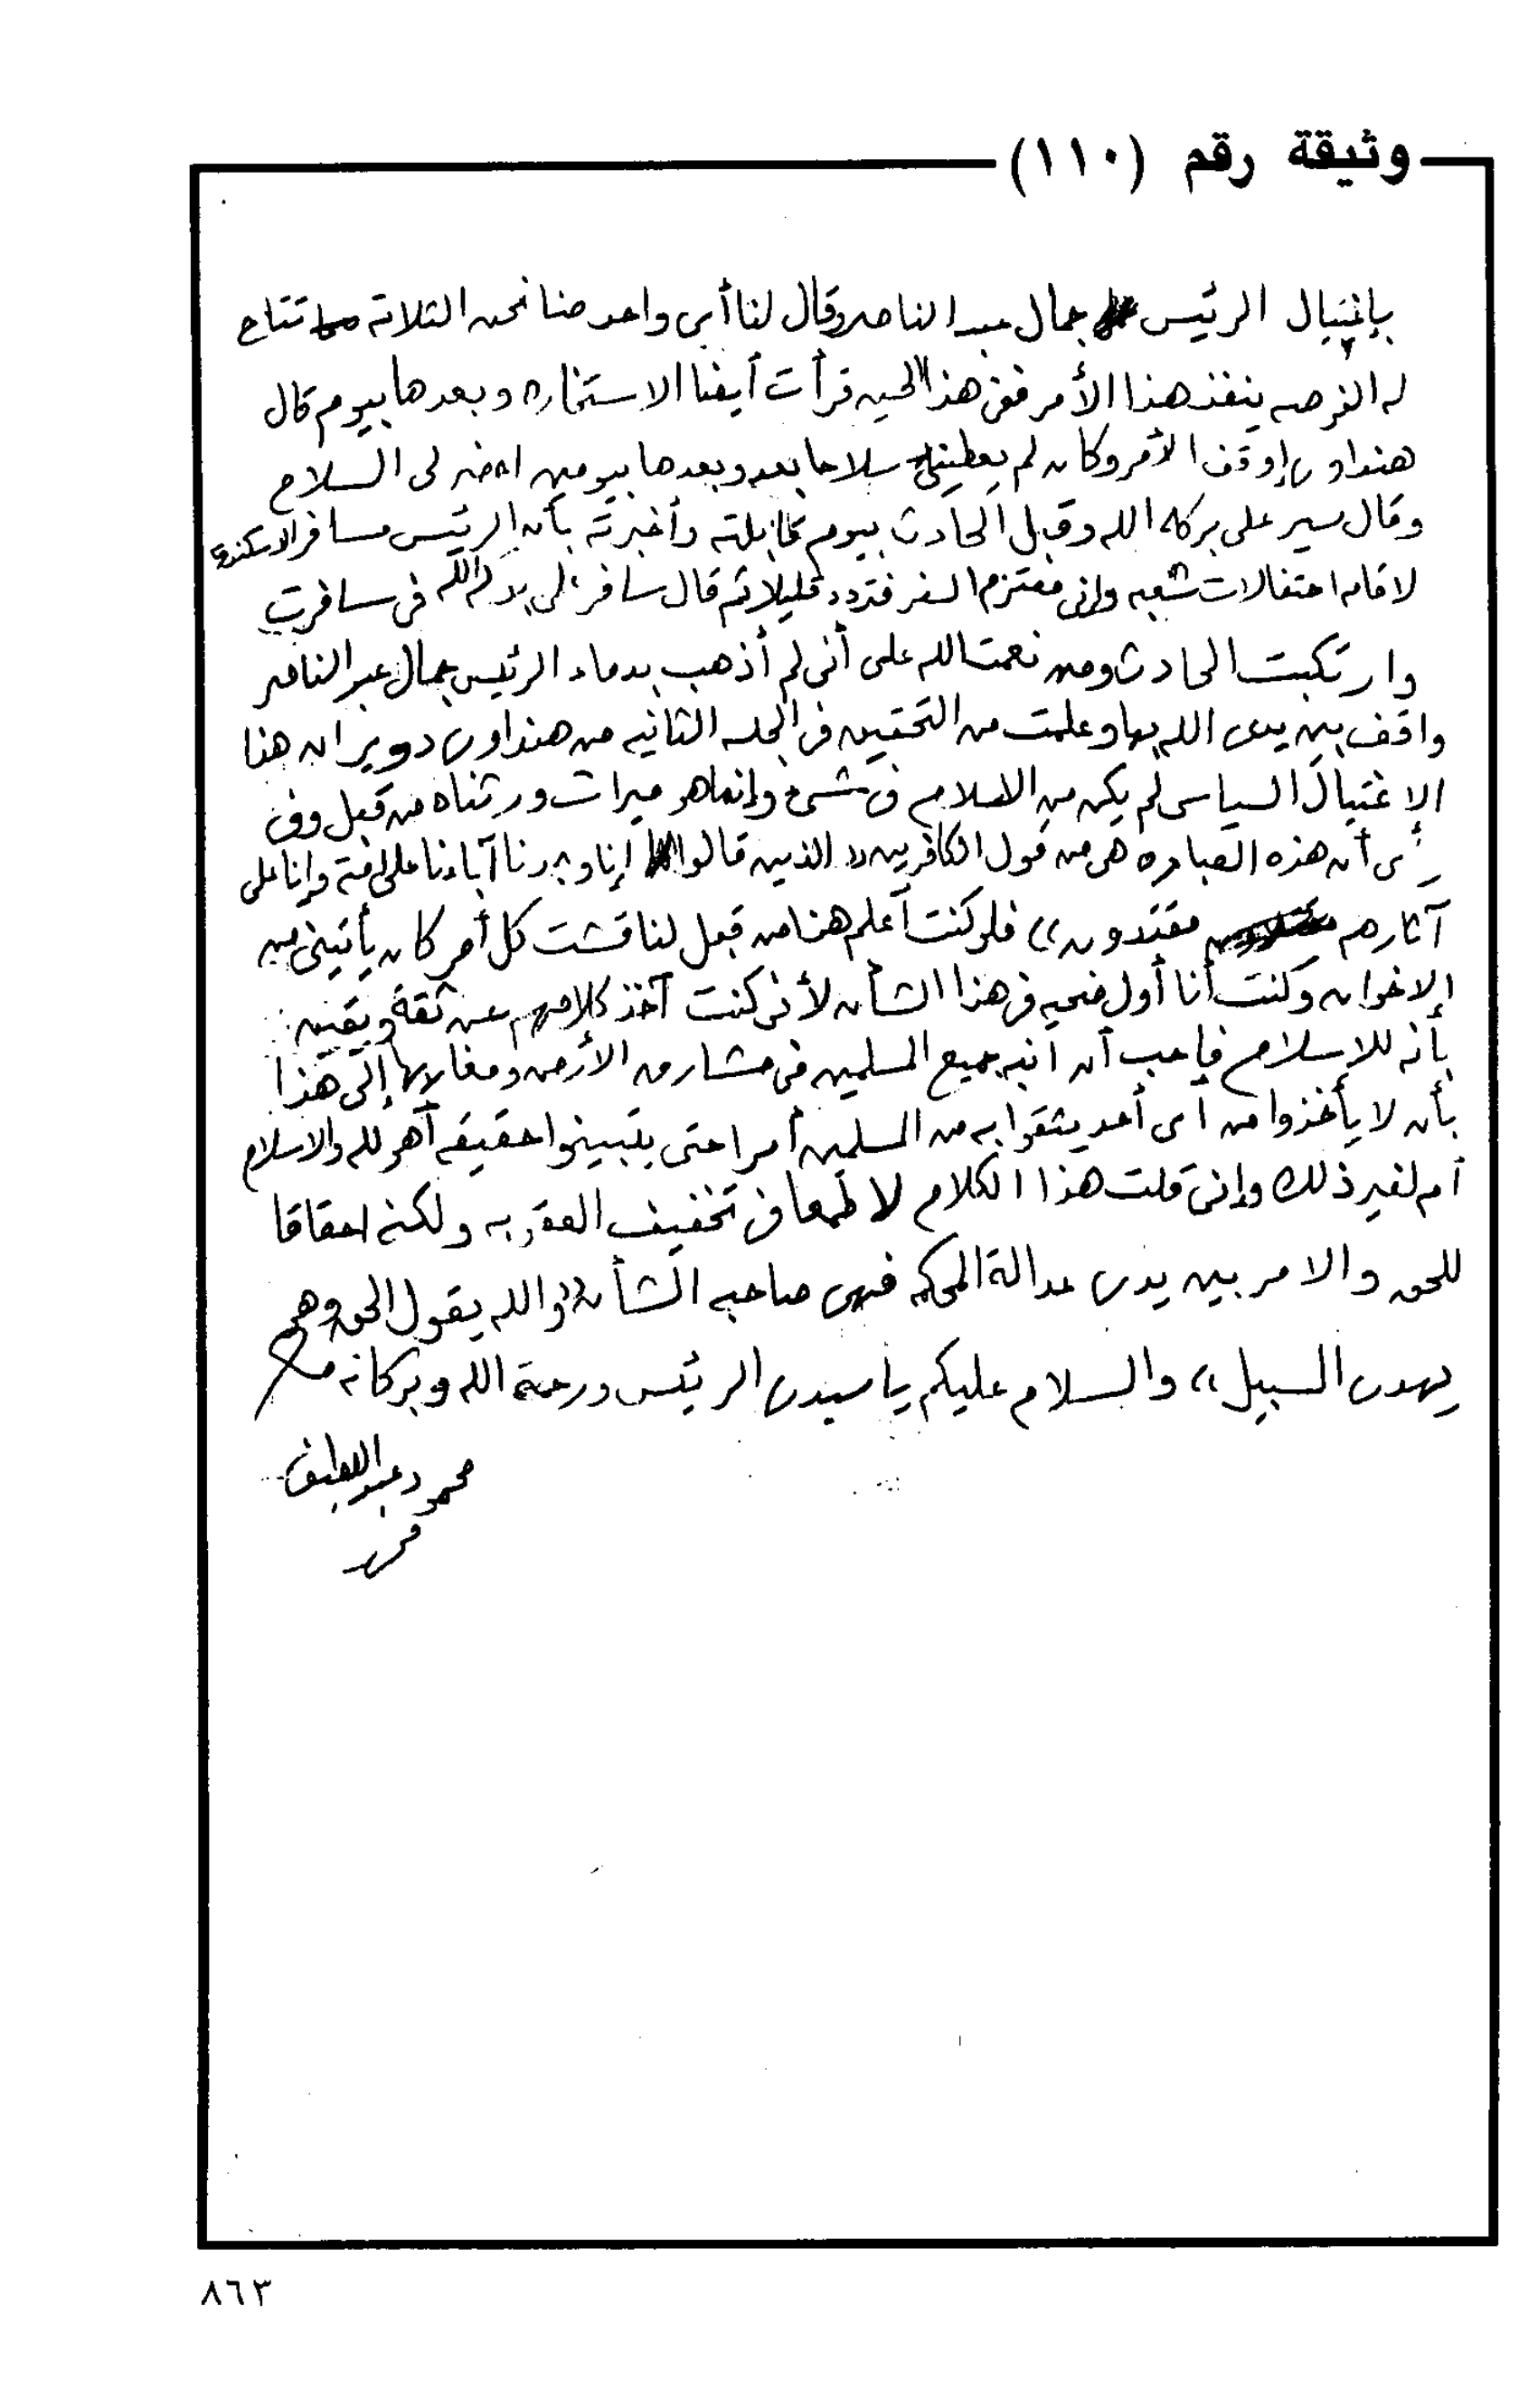 وثيقة رقم (١١٠)
بإغتيال الرئيس جمال عبد الناصر وقال لنا أى واحد منا نحن الثلاثة تتاح
له الفرصه ينفذ هذا الأمر ففى هذا الحين قرأت أيضا الاستخاره وبعدها بيوم قال
هنداوى إوقف الأمر وكان لم يعطينى سلاحا بعد وبعدها بيومين احضر لى السلاح
وقال سير على بركه الله وقبل الحادث بيوم قابلته وأخبرته بأن الرئيس مسافر الاسكندرية
لاقامه احتفالات شعبيه وإنى معتزم السفر فتردد قليلا ثم قال سافر على بركه الله سافرت
وارتكبت الحادث ومن نعمت الله على أنى لم أذهب بدماء الرئيس جمال عبد الناصر
واقف بين يدى الله بها وعلمت من التحقيق فى الجلسه الثانيه من هنداوى دوير ان هذا
الاغتيال السياسى لم يكن من الاسلام فى شىء وإنما هو ميراث ورثناه من قبل وفى
رأى أن هذه العباره هى من قول الكافرين «الذين قالوا إنا وجدنا آباءنا على امة وإنا على
آثارهم مقتدون» فلو كنت أعلم هذا من قبل لناقشت كل أمر كان يأتينى من
الاخوان وكنت أنا أول ضحيه فى هذا الشأن لأنى كنت آخذ كلامهم عن ثقة ويقين
بأنه للإسلام فاحب أن انبه جميع المسلمين فى مشارق الأرض ومغاربها إلى هذا
بأن لا يأخذوا من أى أحد يثقوا به من المسلمين أمرا حتى يتبينوا حقيقه أهو لله والاسلام
أم لغير ذلك وإنى قلت هذا الكلام لا طمعا فى تخفيف العقوبه ولكنه احقاقا
للحق والامر بين يدى عدالة المحكمه فهى صاحبه الشأن «والله يقول الحق وهو
يهدى السبيل» والسلام عليكم يا سيدى الرئيس ورحمة الله وبركاته
محمود عبد اللطيف
٨٦٣